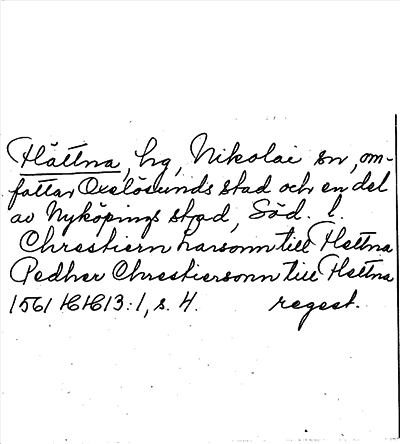 Hättna, hg, Nikolai sn, om-
fattar Oxelösunds stad och en del
av Nyköpings stad, Söd. l.
Chrestiern Larsonn till Hettna
Pedher Chrestiersonn till Hettna
1561 HH 13:1, s. 4. regest.